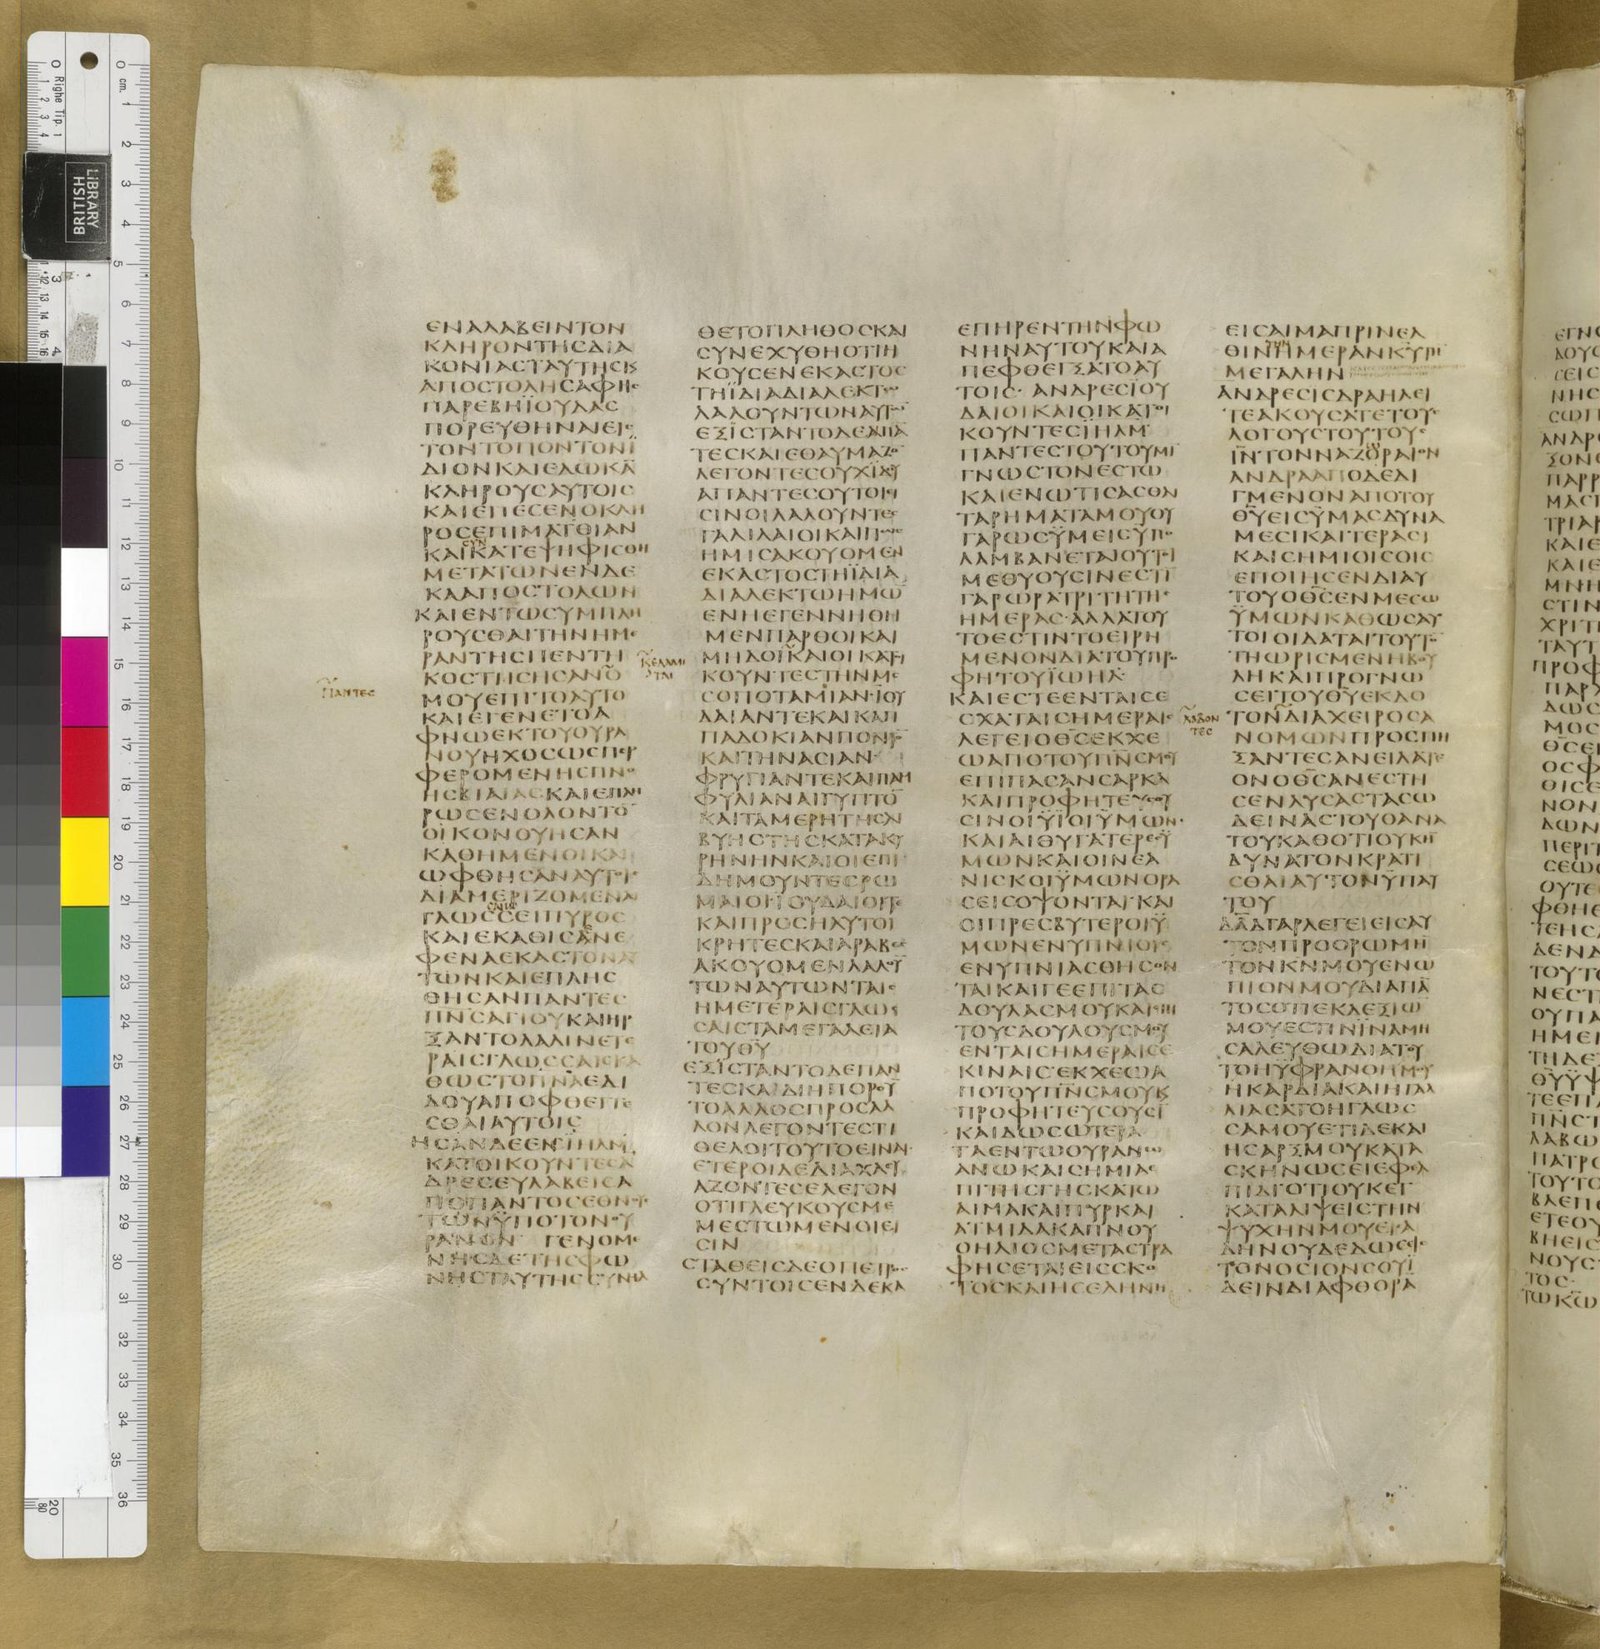 ΕΝΑΛΑΒΕΙΝΤΟΝ
ΚΛΗΡΟΝΤΗϹΔΙΑ
ΚΟΝΙΑϹΤΑΥΤΗϹϗ
ΑΠΟϹΤΟΛΗϹΑΦΗϹ
ΠΑΡΕΒΗΪΟΥΔΑϹ
ΠΟΡΕΥΘΗΝΑΙΕΙϹ
ΤΟΝΤΟΠΟΝΤΟΝΪ
ΔΙΟΝΚΑΙΕΔΩΚΑ̅
ΚΛΗΡΟΥϹΑΥΤΟΙϹ
ΚΑΙΕΠΕϹΕΝΟΚΛΗ
ΡΟϹΕΠΙΜΑΤΘΙΑΝ
ϹΥΝ
ΚΑΙΚΑΤΕΨΗΦΙϹΘΗ
ΜΕΤΑΤΩΝΕΝΔΕ
ΚΑΑΠΟϹΤΟΛΩΝ
ΚΑΙΕΝΤΩϹΥΜΠΛΗ
ΡΟΥϹΘΑΙΤΗΝΗΜΕ
ΡΑΝΤΗϹΠΕΝΤΗ
ΚΟϹΤΗϹΗϹΑΝΟ
ΠΑΝΤΕϹ
ΜΟΥΕΠΙΤΟΑΥΤΟ
ΚΑΙΕΓΕΝΕΤΟΑ
ΦΝΩΕΚΤΟΥΟΥΡΑ
ΝΟΥΗΧΟϹΩϹΠΕΡ
ΦΕΡΟΜΕΝΗϹΠΝΟ
ΗϹΒΙΑΙΑϹΚΑΙΕΠΛΗ
ΡΩϹΕΝΟΛΟΝΤΟ̅
ΟΙΚΟΝΟΥΗϹΑΝ
ΚΑΘΗΜΕΝΟΙΚΑΙ
ΩΦΘΗϹΑΝΑΥΤΟΙϹ
ΔΙΑΜΕΡΙΖΟΜΕΝΑΙ
ΓΛΩϹϹΕΙΠΥΡΟϹ
ΚΑΙΕΚΑΘΙϹΑΝΕ
ΦΕΝΑΕΚΑϹΤΟΝΑΥ
ΤΩΝΚΑΙΕΠΛΗϹ
ΘΗϹΑΝΠΑΝΤΕϹ
ΠΝ̅ϹΑΓΙΟΥΚΑΙΗΡ
ΞΑΝΤΟΛΑΛΙΝΕΤΕ
ΡΑΙϹΓΛΩϹϹΑΙϹΚΑ
ΘΩϹΤΟΠΝ̅ΑΕΔΙ
ΔΟΥΑΠΟΦΘΕΓΓΕ
ϹΘΑΙΑΥΤΟΙϹ
ΗϹΑΝΔΕΕΝΪΗΛΜ̅
ΚΑΤΟΙΚΟΥΝΤΕϹΑ
ΔΡΕϹΕΥΛΑΒΕΙϹΑ
ΠΟΠΑΝΤΟϹΕΘΝΟΥϹ
ΤΩΝΫΠΟΤΟΝΟΥ
ΡΑΝΟΝ ΓΕΝΟΜΕ
ΝΗϹΔΕΤΗϹΦΩ
ΝΗϹΤΑΥΤΗϹϹΥΝΗΛ
ΘΕΤΟΠΛΗΘΟϹΚΑΙ
ϹΥΝΕΧΥΘΗΟΤΙΗ
ΚΟΥϹΕΝΕΚΑϹΤΟϹ
ΤΗΪΔΙΑΔΙΑΛΕΚΤΩ
ΛΑΛΟΥΝΤΩΝΑΥΤΩ̅
ΕΞΙϹΤΑΝΤΟΔΕΑΠΑ̅
ΤΕϹΚΑΙΕΘΑΥΜΑΖΟ̅
ΛΕΓΟΝΤΕϹΟΥΧΪΔΟΥ
ΑΠΑΝΤΕϹΟΥΤΟΙΕΙ
ϹΙΝΟΙΛΑΛΟΥΝΤΕϹ
ΓΑΛΙΛΑΙΟΙΚΑΙΠΩϹ
ΗΜΙϹΑΚΟΥΟΜΕΝ
ΕΚΑϹΤΟϹΤΗΪΔΙΑ
ΔΙΑΛΕΚΤΩΗΜΩ̅
ΕΝΗΕΓΕΝΝΗΘΗ
ΜΕΝΠΑΡΘΟΙΚΑΙ
ΚΕΛΑΜΙ
ΤΑΙ
ΜΗΔΟΙΚΑΙΟΙΚΑΤΟΙ
ΚΟΥΝΤΕϹΤΗΝΜΕ
ϹΟΠΟΤΑΜΙΑΝ·ΪΟΥ
ΔΑΙΑΝΤΕΚΑΙΚΑΠ
ΠΑΔΟΚΙΑΝΠΟΝΤΟ̅
ΚΑΙΤΗΝΑϹΙΑΝ
ΦΡΥΓΙΑΝΤΕΚΑΙΠΑΜ
ΦΥΛΙΑΝΑΙΓΥΠΤΟ̅
ΚΑΙΤΑΜΕΡΗΤΗϹΛΙ
ΒΥΗϹΤΗϹΚΑΤΑΚΥ
ΡΗΝΗΝΚΑΙΟΙΕΠΙ
ΔΗΜΟΥΝΤΕϹΡΩ
ΜΑΙΟΙΪΟΥΔΑΙΟΙΤΕ
ΚΑΙΠΡΟϹΗΛΥΤΟΙ
ΚΡΗΤΕϹΚΑΙΑΡΑΒΕϹ
ΑΚΟΥΟΜΕΝΛΑΛΟΥ̅
ΤΩΝΑΥΤΩΝΤΑΙϹ
ΗΜΕΤΕΡΑΙϹΓΛΩϹ
ϹΑΙϹΤΑΜΕΓΑΛΕΙΑ
ΤΟΥΘ̅Υ̅
ΕΞΙϹΤΑΝΤΟΔΕΠΑΝ
ΤΕϹΚΑΙΔΙΗΠΟΡΟΥ̅
ΤΟΑΛΛΟϹΠΡΟϹΑΛ
ΛΟΝΛΕΓΟΝΤΕϹΤΙ
ΘΕΛΟΙΤΟΥΤΟΕΙΝΑΙ
ΕΤΕΡΟΙΔΕΔΙΑΧΛΕΥ
ΑΖΟΝΤΕϹΕΛΕΓΟΝ
ΟΤΙΓΛΕΥΚΟΥϹΜΕ
ΜΕϹΤΩΜΕΝΟΙΕΙ
ϹΙΝ
ϹΤΑΘΕΙϹΔΕΟΠΕΤΡΟϹ
ϹΥΝΤΟΙϹΕΝΔΕΚΑ
ΕΠΗΡΕΝΤΗΝΦΩ
ΝΗΝΑΥΤΟΥΚΑΙΑ
ΠΕΦΘΕΓΞΑΤΟΑΥ
ΤΟΙϹ· ΑΝΔΡΕϹΪΟΥ
ΔΑΙΟΙΚΑΙΟΙΚΑΤΟΙ
ΚΟΥΝΤΕϹΪΗΛΜ̅
ΠΑΝΤΕϹΤΟΥΤΟΥΜΙ̅
ΓΝΩϹΤΟΝΕϹΤΩ
ΚΑΙΕΝΩΤΙϹΑϹΘΑΙ
ΤΑΡΗΜΑΤΑΜΟΥΟΥ
ΓΑΡΩϹΫΜΕΙϹΫΠΟ
ΛΑΜΒΑΝΕΤΑΙΟΥΤΟΙ
ΜΕΘΥΟΥϹΙΝΕϹΤΙ̅
ΓΑΡΩΡΑΤΡΙΤΗΤΗϹ
ΗΜΕΡΑϹ·ΑΛΛΑΤΟΥ
ΤΟΕϹΤΙΝΤΟΕΙΡΗ
ΜΕΝΟΝΔΙΑΤΟΥΠΡΟ
ΦΗΤΟΥΪΩΗΛ·
ΚΑΙΕϹΤΕΕΝΤΑΙϹΕ
ϹΧΑΤΑΙϹΗΜΕΡΑΙϹ
ΛΕΓΕΙΟΘ̅Ϲ̅ΕΚΧΕ
ΩΑΠΟΤΟΥΠΝ̅Ϲ̅ΜΟΥ
ΕΠΙΠΑϹΑΝϹΑΡΚΑ
ΚΑΙΠΡΟΦΗΤΕΥϹΟΥ
ϹΙΝΟΙΫΪΟΙΫΜΩΝ·
ΚΑΙΑΙΘΥΓΑΤΕΡΕϹΫ
ΜΩΝΚΑΙΟΙΝΕΑ
ΝΙϹΚΟΙΫΜΩΝΟΡΑ
ϹΕΙϹΟΨΟΝΤΑΙ·ΚΑΙ
ΟΙΠΡΕϹΒΥΤΕΡΟΙΫ
ΜΩΝΕΝΥΠΝΙΟΙϹ
ΕΝΥΠΝΙΑϹΘΗϹΟΝ
ΤΑΙΚΑΙΓΕΕΠΙΤΑϹ
ΔΟΥΛΑϹΜΟΥΚΑΙΕΠΙ
ΤΟΥϹΔΟΥΛΟΥϹΜΟΥ
ΕΝΤΑΙϹΗΜΕΡΑΙϹΕ
ΚΙΝΑΙϹΕΚΧΕΩΑ
ΠΟΤΟΥΠΝ̅Ϲ̅ΜΟΥϗ
ΠΡΟΦΗΤΕΥϹΟΥϹΙ̅
ΚΑΙΔΩϹΩΤΕΡΑ
ΤΑΕΝΤΩΟΥΡΑΝΩ
ΑΝΩΚΑΙϹΗΜΙΑΕ
ΠΙΤΗϹΓΗϹΚΑΤΩ
ΑΙΜΑΚΑΙΠΥΡΚΑΙ
ΑΤΜΙΔΑΚΑΠΝΟΥ
ΟΗΛΙΟϹΜΕΤΑϹΤΡΑ
ΦΗϹΕΤΑΙΕΙϹϹΚΟ
ΤΟϹΚΑΙΗϹΕΛΗΝΗ
ΕΙϹΑΙΜΑΠΡΙΝΕΛ
ΤΗΝ
ΘΙΝΗΜΕΡΑΝΚΥΡΙΟΥ
ΜΕΓΑΛΗΝ
ΑΝΔΡΕϹΙϹΔΡΑΗΛΕΙ
ΤΕΑΚΟΥϹΑΤΕΤΟΥϹ
ΛΟΓΟΥϹΤΟΥΤΟΥϹ
Ι̅Ν̅ΤΟΝΝΑΖΟΡΑΙΟΝ
ΑΝΔΡΑΑΠΟΔΕΔΙ
ΓΜΕΝΟΝΑΠΟΤΟΥ
Θ̅Υ̅ΕΙϹΫΜΑϹΔΥΝΑ
ΜΕϹΙΚΑΙΤΕΡΑϹΙ
ΚΑΙϹΗΜΙΟΙϹΟΙϹ
ΕΠΟΙΗϹΕΝΔΙΑΥ
ΤΟΥΟΘ̅Ϲ̅ΕΝΜΕϹΩ
ΫΜΩΝΚΑΘΩϹΑΥ
ΤΟΙΟΙΔΑΤΑΙΤΟΥΤΟ̅
ΤΗΩΡΙϹΜΕΝΗΒΟΥ
ΛΗΚΑΙΠΡΟΓΝΩ
ϹΕΙΤΟΥΘ̅Υ̅ΕΚΔΟ
ΛΑΒΟΝ
ΤΕϹ
ΤΟΝΔΙΑΧΕΙΡΟϹΑ
ΝΟΜΩΝΠΡΟϹΠΗ
ΞΑΝΤΕϹΑΝΕΙΛΑΤΕ
ΟΝΟΘ̅Ϲ̅ΑΝΕϹΤΗ
ϹΕΝΛΥϹΑϹΤΑϹΩ
ΔΕΙΝΑϹΤΟΥΘΑΝΑ
ΤΟΥΚΑΘΟΤΙΟΥΚΗ
ΔΥΝΑΤΟΝΚΡΑΤΙ
ϹΘΑΙΑΥΤΟΝΫΠΑΥ
ΤΟΥ
Δ̅Α̅Δ̅ΓΑΡΛΕΓΕΙΕΙϹΑΥ
ΤΟΝΠΡΟΟΡΩΜΗ
ΤΟΝΚ̅Ν̅ΜΟΥΕΝΩ
ΠΙΟΝΜΟΥΔΙΑΠΑ
ΤΟϹΟΤΙΕΚΔΕΞΙΩ̅
ΜΟΥΕϹΤΙΝΪΝΑΜΗ
ϹΑΛΕΥΘΩΔΙΑΤΟΥ
ΤΟΗΫΦΡΑΝΘΗΜΟΥ
ΗΚΑΡΔΙΑΚΑΙΗΓΑΛ
ΛΙΑϹΑΤΟΗΓΛΩϹ
ϹΑΜΟΥΕΤΙΔΕΚΑΙ
ΗϹΑΡΞΜΟΥΚΑΤΑ
ϹΚΗΝΩϹΕΙΕΦΕΛ
ΠΙΔΙΟΤΙΟΥΚΕΓ
ΚΑΤΑΛΙΨΕΙϹΤΗΝ
ΨΥΧΗΝΜΟΥΕΙϹΑ
ΔΗΝΟΥΔΕΔΩϹΕΙϹ
ΤΟΝΟϹΙΟΝϹΟΥΪ
ΔΕΙΝΔΙΑΦΘΟΡΑ
BRITISH
LIBRARY